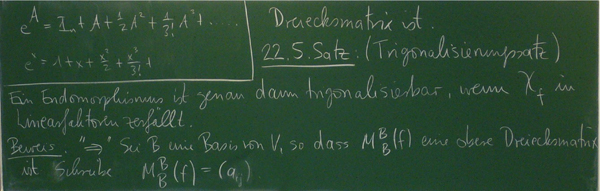 e^A = I_n + A + 1/2 A² + 1/3! A³ + .....
e^x = 1 + x + x²/2 + x³/3! +
Dreiecksmatrix ist.
22.5. Satz: (Trigonalisierungssatz)
Ein Endomorphismus ist genau dann trigonalisierbar, wenn χ_f in
Linearfaktoren zerfällt.
Beweis: "⇒" Sei B eine Basis von V, so dass M_B^B(f) eine obere Dreiecksmatrix
ist. Schreibe M_B^B(f) = (a_ij)